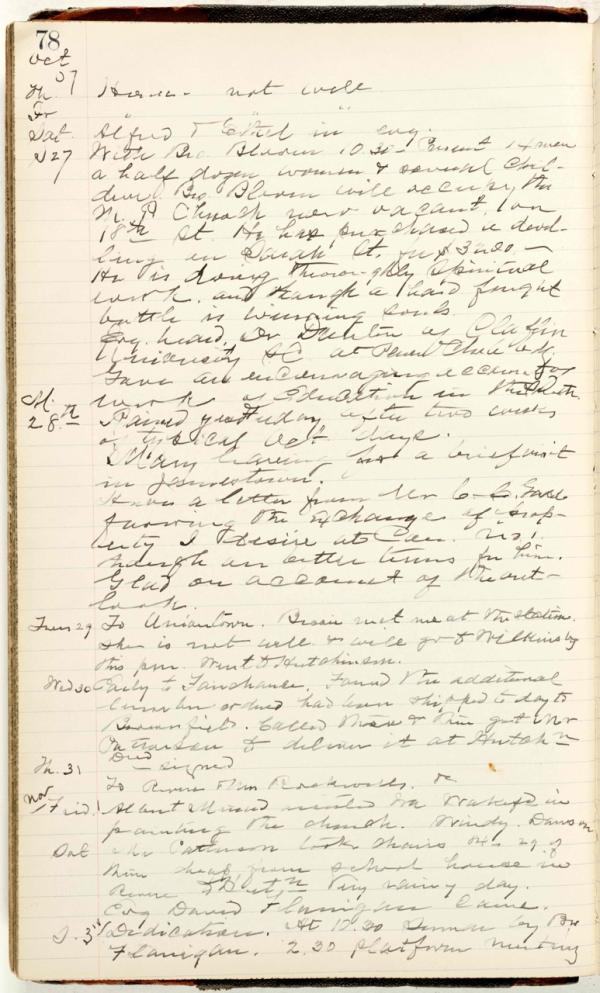 78
Oct
Th. 07 Home - not well
Fr " " "
Sat. Alfred & Ethel in evg.
S 27 With Bro Bloom 10.30 - Present 14 men
a half dozen women & several chil-
dren. Bro. Bloom will occupy the
M. P. Church now vacant, on
18th St. He has purchased a dwel-
ling in Sarah St. for $3200 -
He is doing thoroughly spiritual
work, and though a hard fought
battle is winning souls.
Evg. heard Dr. Dunton of Claflin
University SC. at
Gave an encouraging account of
work of Education in the South.
M. 28th Rained yesterday after two weeks
of typical Oct. days.
Mary leaving for a brief visit
in Jamestown.
Have a letter from Mr C. C.
favoring the exchange of prop-
erty I desire at
though on better terms for him.
Glad on account of the out-
look.
Tues 29 To Uniontown. Bessie met me at the station.
She is not well & will go to Wilkinsbg
this pm. Went to Hutchinson.
Wed 30 Early to Fairchance. Found the additional
lumber ordered had been shipped to day to
Brownfield. Called there & then got Mr
Patterson to deliver it at Hutchn
Deed signed
Th. 31 To Revere & Mrs Rockwells. &c
Nov
Frid. 1 Albert Mead Wakefd in
painting the church. Windy. Dawson
Sat & Mr Patterson took chairs 4 & 29 of
them that from school house in
Revere to Hutn Very rainy day.
Evg David Flanigan came.
S. 3rd Dedication. At 10.30 Sermon by Bro
Flanigan. 2.30 platform meeting